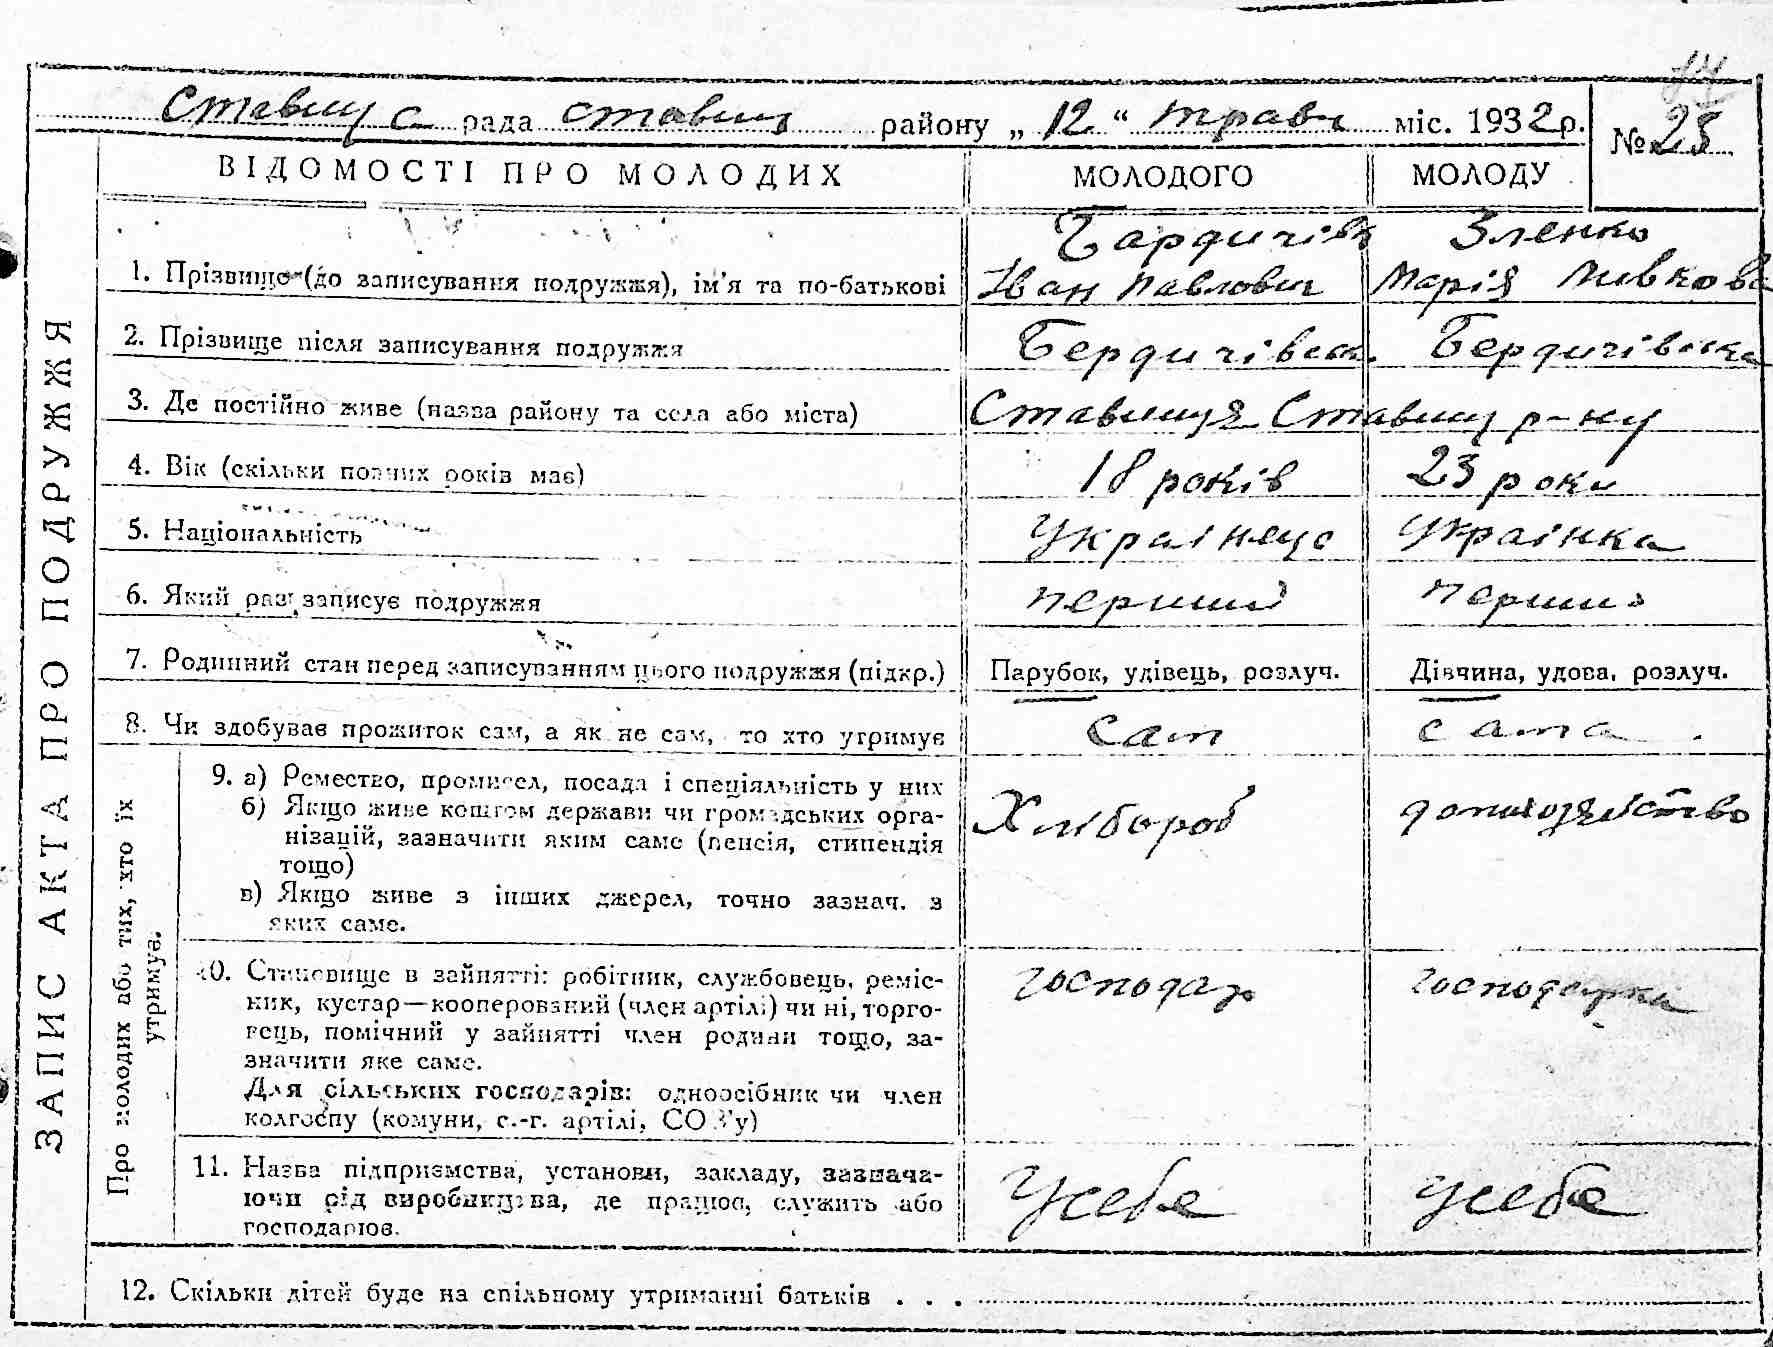 14
Ставищ с. рада Ставищ району „ 12 “ травн міс. 1932 р. № 25
ВІДОМОСТІ ПРО МОЛОДИХ МОЛОДОГО МОЛОДУ
Бардичівс Зленко
1. Прізвище (до записування подружжя), ім’я та по-батькові Іван Павлович Марія
2. Прізвище після записування подружжя Бердичівськ. Бердичівська
3. Де постійно живе (назва району та села або міста) Ставища Ставищ р-ну
4. Вік (скільки повних років має) 18 років 23 роки
5. Національність Українець Українка
6. Який раз записує подружжя перший перший
7. Родинний стан перед записуванням цього подружжя (підкр.) Парубок, удівець, розлуч. Дівчина, удова, розлуч.
8. Чи здобував прожиток сам, а як не сам, то хто утримує Сам сама
9. а) Ремество, промисел, посада і спеціяльність у них
б) Якщо живе коштом держави чи громадських орга-
нізацій, зазначити яким саме (пенсія, стипендія
тощо)
Хлібороб домохозяйство
в) Якщо живе з інших джерел, точно зазнач. з
яких саме.
10. Становище в зайнятті: робітник, службовець, реміс-
ник, кустар—кооперований (член артілі) чи ні, торго-
вець, помічний у зайнятті член родини тощо, за-
значити яке саме.
Для сільських господарів: одноосібник чи член
колгоспу (комуни, с.-г. артілі, СОЗ’у)
господар господарка
11. Назва підприємства, установи, закладу, зазнача-
ючи рід виробництва, де працює, служить або
господарює.
У себе у себе
12. Скільки дітей буде на спільному утриманні батьків . . .
ЗАПИС АКТА ПРО ПОДРУЖЖЯ
Про молодих або тих, хто їх
утримує.